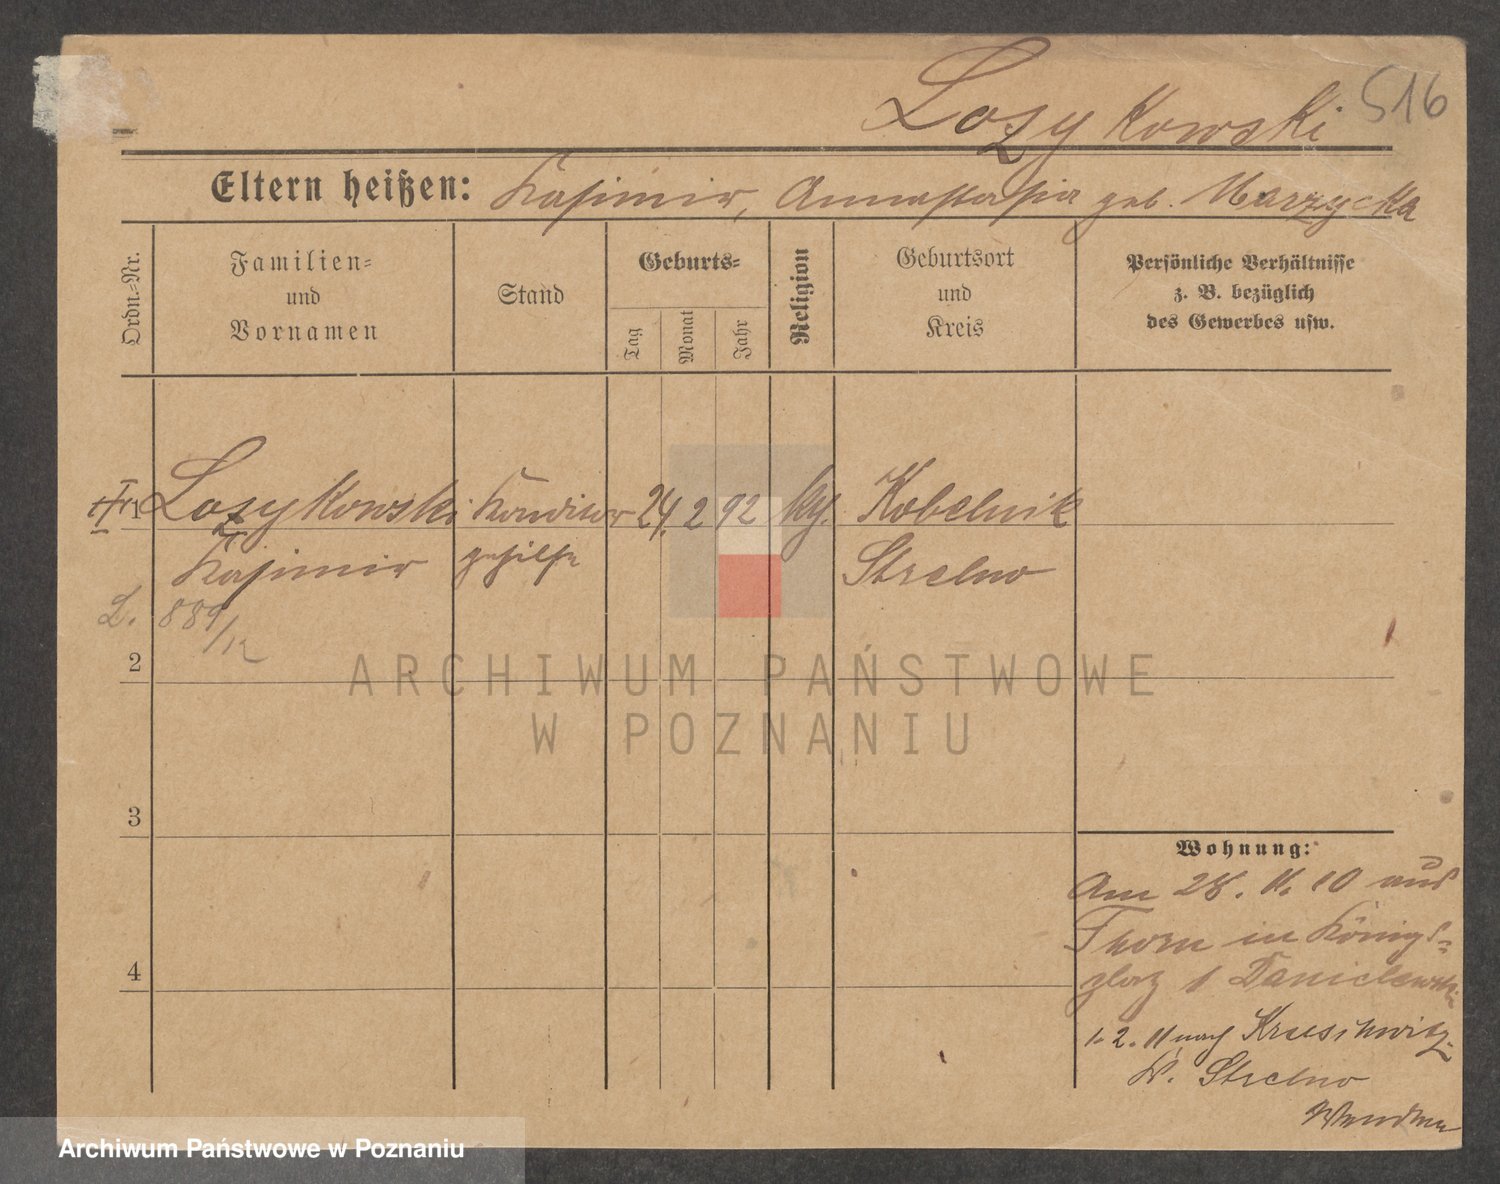 Lozykowski 516
Eltern heißen: Kasimir, Annastasia geb. Murzycka
Ordn.-Nr.
Familien-
und
Vornamen
Stand
Geburts-
Tag
Monat
Jahr
Religion
Geburtsort
und
Kreis
Persönliche Verhältnisse
z. B. bezüglich
des Gewerbes usw.
1 Lozykowski Konditor 24. 2 92 kg. Kobelnik
Kasimir gehilfe Strelno
L. 889/12
2
ARCHIWUM PAŃSTWOWE
W POZNANIU
3
Wohnung:
Am 28. 11. 10 aus
Thorn in Königs-
platz 1 Danielewski
4
1. 2. 11 nach Kruschwitz
Kr. Strelno
Archiwum Państwowe w Poznaniu